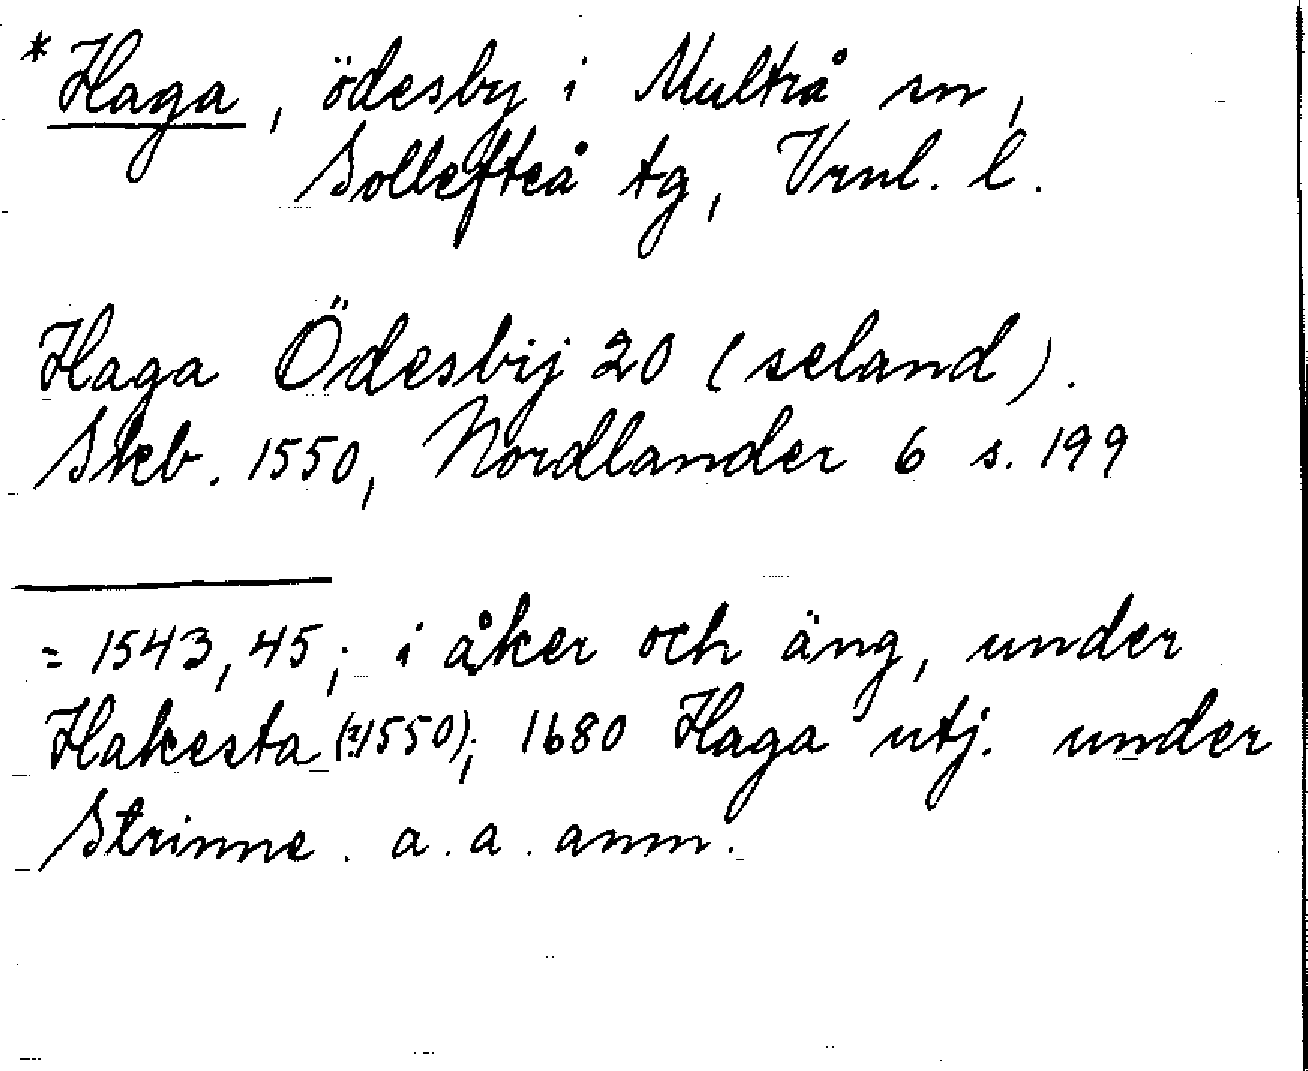 * Haga, ödesby i Multrå sn,
Sollefteå tg, Vrnl. l.
Haga Ödesbij 20 (seland).
Skb. 1550, Nordlander 6 s. 199
= 1543, 45; i åker och äng, under
Hakesta (1550); 1680 Haga utj. under
Strinne. a. a. anm.